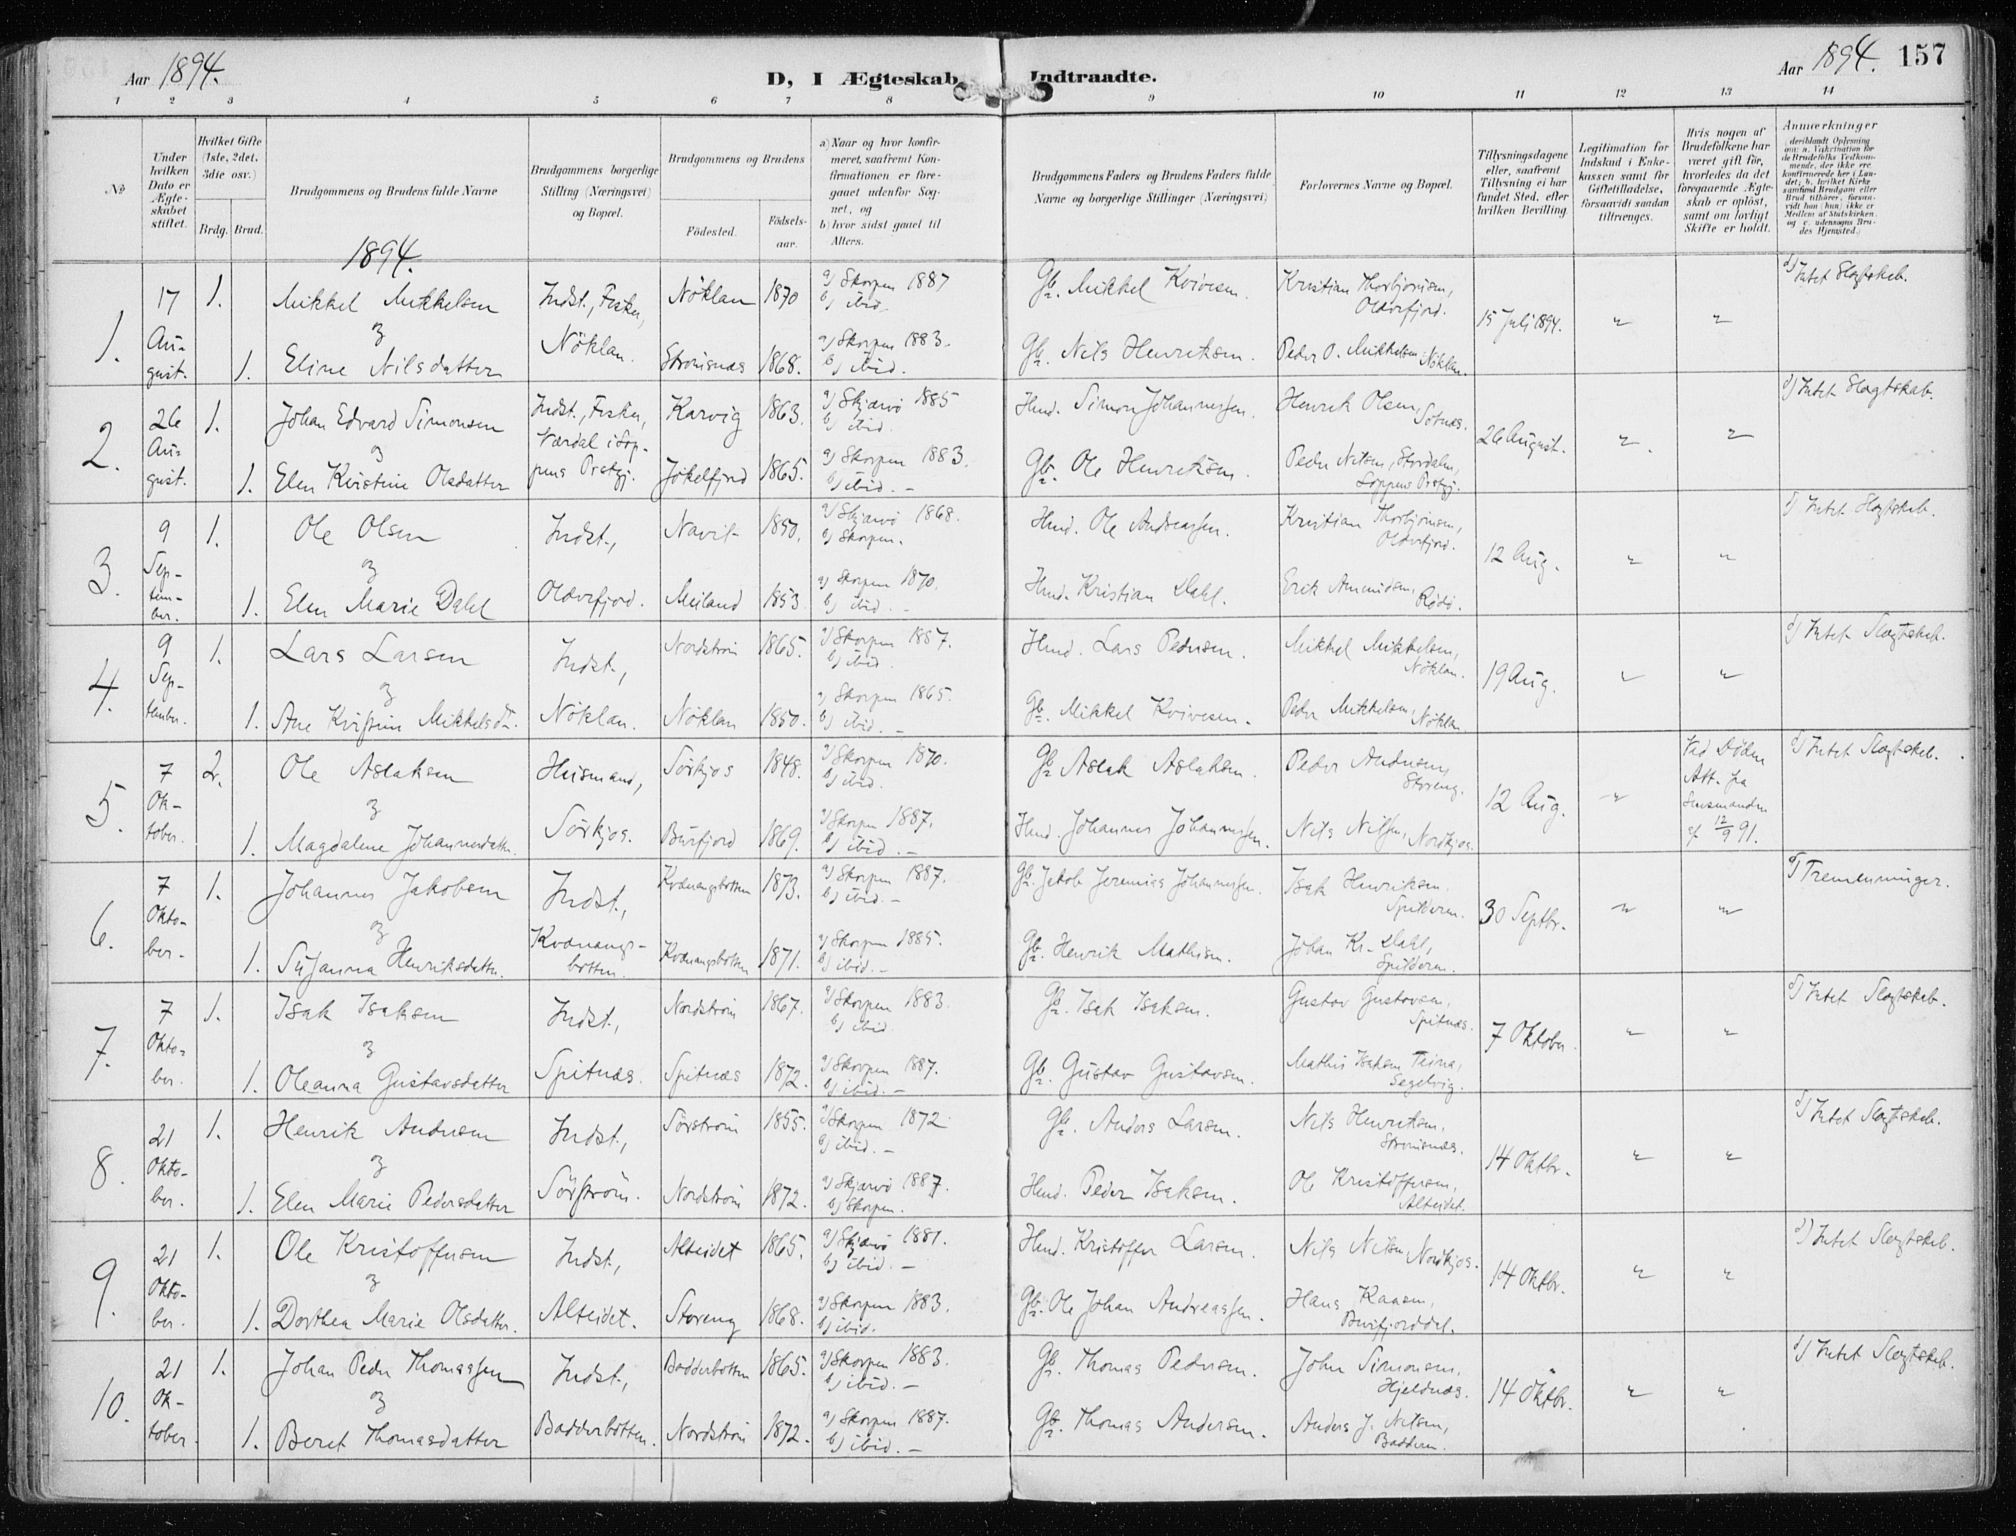 Aar 1894.
D, I Ægteskab Indtraadte.
Aar 1894. 157
1 2 3 4 5 6 7 8 9 10 11 12 13 14
No
Under hvilken Dato er Ægteskabet stiftet.
Hvilket Gifte (1ste, 2det, 3die osv.)
Brdg. Brud.
Brudgommens og Brudens fulde Navne
Brudgommens borgerlige Stilling (Næringsvei) og Bopæl.
Brudgommens og Brudens
Födested.
Födsels-aar.
a) Naar og hvor konfirmeret, saafremt Konfirmationen er foregaaet udenfor Sognet, og
b) hvor sidst gaaet til Alters.
Brudgommens Faders og Brudens Faders fulde Navne og borgerlige Stillinger (Næringsvei)
Forlovernes Navne og Bopæl.
Tillysningsdagene eller, saafremt Tillysning ei har fundet Sted, efter hvilken Bevilling.
Legitimation for Indskud i Enkekassen samt for Giftetilladelse, forsaavidt saadan tiltrænges.
Hvis nogen af Brudefolkene har været gift før, hvorledes da det foregaaende Ægteskab er oplöst, samt om lovligt Skifte er holdt.
Anmærkninger
1894.
1. 17 August. 1. Mikkel Mikkelsen Indst., Fisker, Nöklan 1870 a) Skorpen 1887 b) ibid. Gbr. Mikkel Kvivesen. Kristian Thorbjörnsen, Oldervfjord. 15 Juli 1894. " " d) Intet Slegtskab.
&
1. Eline Nilsdatter Nöklan. Strömsnæs 1868. a) Skorpen 1883. b) ibid. Gbr. Nils Henriksen. Peder O. Mikkelsen Nöklan.
2. 26 August. 1. Johan Edvard Simonsen Indst., Fisker, Karvig 1863. a) Skjærvö 1885 b) ibid. Hmd. Simon Johannessen. Henrik Olsen, Sotnæs. 26 August. " " d) Intet Slegtskab.
&
1. Elen Kristine Olsdatter Jökelfjord 1865. a) Skorpen 1883. b) ibid. – Gbr. Ole Henriksen. Peder Nilsen, Stordalen, Loppens Prstgj.
3. 9 September. 1. Ole Olsen Indst., Navit 1850. a) Skjærvö 1868. b) Skorpen. Hmd. Ole Andreassen. Kristian Thorbjörnsen, Oldervfjord. 12 Aug. " " d) Intet Slegtskab.
&
1. Elen Marie Dahl Oldervfjord. Meiland 1853. a) Skorpen 1870. b) ibid. – Hmd. Kristian Dahl. Erik Amundsen, Rödö.
4. 9 September. 1. Lars Larsen Indst., Nordström 1865. a) Skorpen b) ibid. Hmd. Lars Pedersen. Mikkel Mikkelsen, Nöklan. 19 Aug. " " d) Intet Slegtskab.
&
1. Ane Kristine Mikkelsdtr. Nöklan. Nöklan 1850. a) Skorpen 1865. b) ibid. – Gbr. Mikkel Kvivesen. Peder Mikkelsen, Nöklan
5. 7 Oktober. 2. Ole Aslaksen Husmand, Sörkjos 1848. a) Skorpen 1870. b) ibid. Gbr Aslak Aslaksen. Peder Andersen, Storeng. 12 Aug. " Ved Döden Att. fra Lensmanden af 12/9 91. d) Intet Slegtskab.
&
1. Magdalene Johannesdatter. Sörkjos. Burfjord 1869. a) Skorpen 1887. b) ibid. – Hmd. Johannes Johannessen. Nils Nilsen, Nordkjos.
6. 7 Oktober. 1. Johannes Jakobsen Indst., Kvænangsbotten 1873. a) Skorpen 1887. b) ibid. – Gbr. Jakob Jeremias Johannessen. Isak Henriksen. Spilderen. 30 Septbr. " " d) Tremenninger.
&
1. Susanna Henriksdatter. Kvænangsbotten. Kvænangsbotten 1871. a) Skorpen 1885. b) ibid. – Gbr. Henrik Mathisen. Johan Kr. Dahl, Spilderen.
7. 7 Oktober. 1. Isak Isaksen Indst., Nordström 1867. a) Skorpen 1883. b) ibid. Gbr. Isak Isaksen. Gustav Gustavsen, Spitnæs. 7 Oktober. " " d) Intet Slegtskab.
&
1. Oleanna Gustavsdatter Spitnæs. Spitnæs 1872. a) Skorpen 1887. b) ibid. – Gbr. Gustav Gustavsen. Mathis Isaksen Segelvig.
8. 21 Oktober. 1. Henrik Andersen Indst., Sörström 1855. a) Skorpen 1872 b) ibid. – Gbr. Anders Larsen. Nils Henriksen, Strömsnæs. 14 Oktbr. " " d) Intet Slegtskab.
&
1. Elen Marie Pedersdatter Sörström. Nordström 1872. a) Skjærvö 1887. b) Skorpen. Hmd. Peder Isaksen. Ole Kristoffersen, Alteidet.
9. 21 Oktober. 1. Ole Kristoffersen Indst., Alteidet 1865. a) Skjærvö 1881. b) ibid. – Hmd. Kristoffer Larsen. Nils Nilsen Nordkjos. 14 Oktbr. " " d) Intet Slegtskab.
&
1. Dorthea Marie Olsdatter. Alteidet. Storeng 1868. a) Skorpen 1883. b) ibid. Gbr. Ole Johan Andreassen. Hans Burfjorddal.
10. 21 Oktober. 1. Johan Peder Thomassen Indst., Badderbotten 1865. a) Skorpen 1883. b) ibid. – Gbr. Thomas Pedersen. John Simonsen, Hjeldnæs. 14 Oktbr. " " d) Intet Slegtskab.
&
1. Beret Thomasdatter Badderbotten. Nordström 1872. a) Skorpen 1887. b) ibid. – Gbr. Thomas Andersen. Anders J. Nilsen, Badderen.